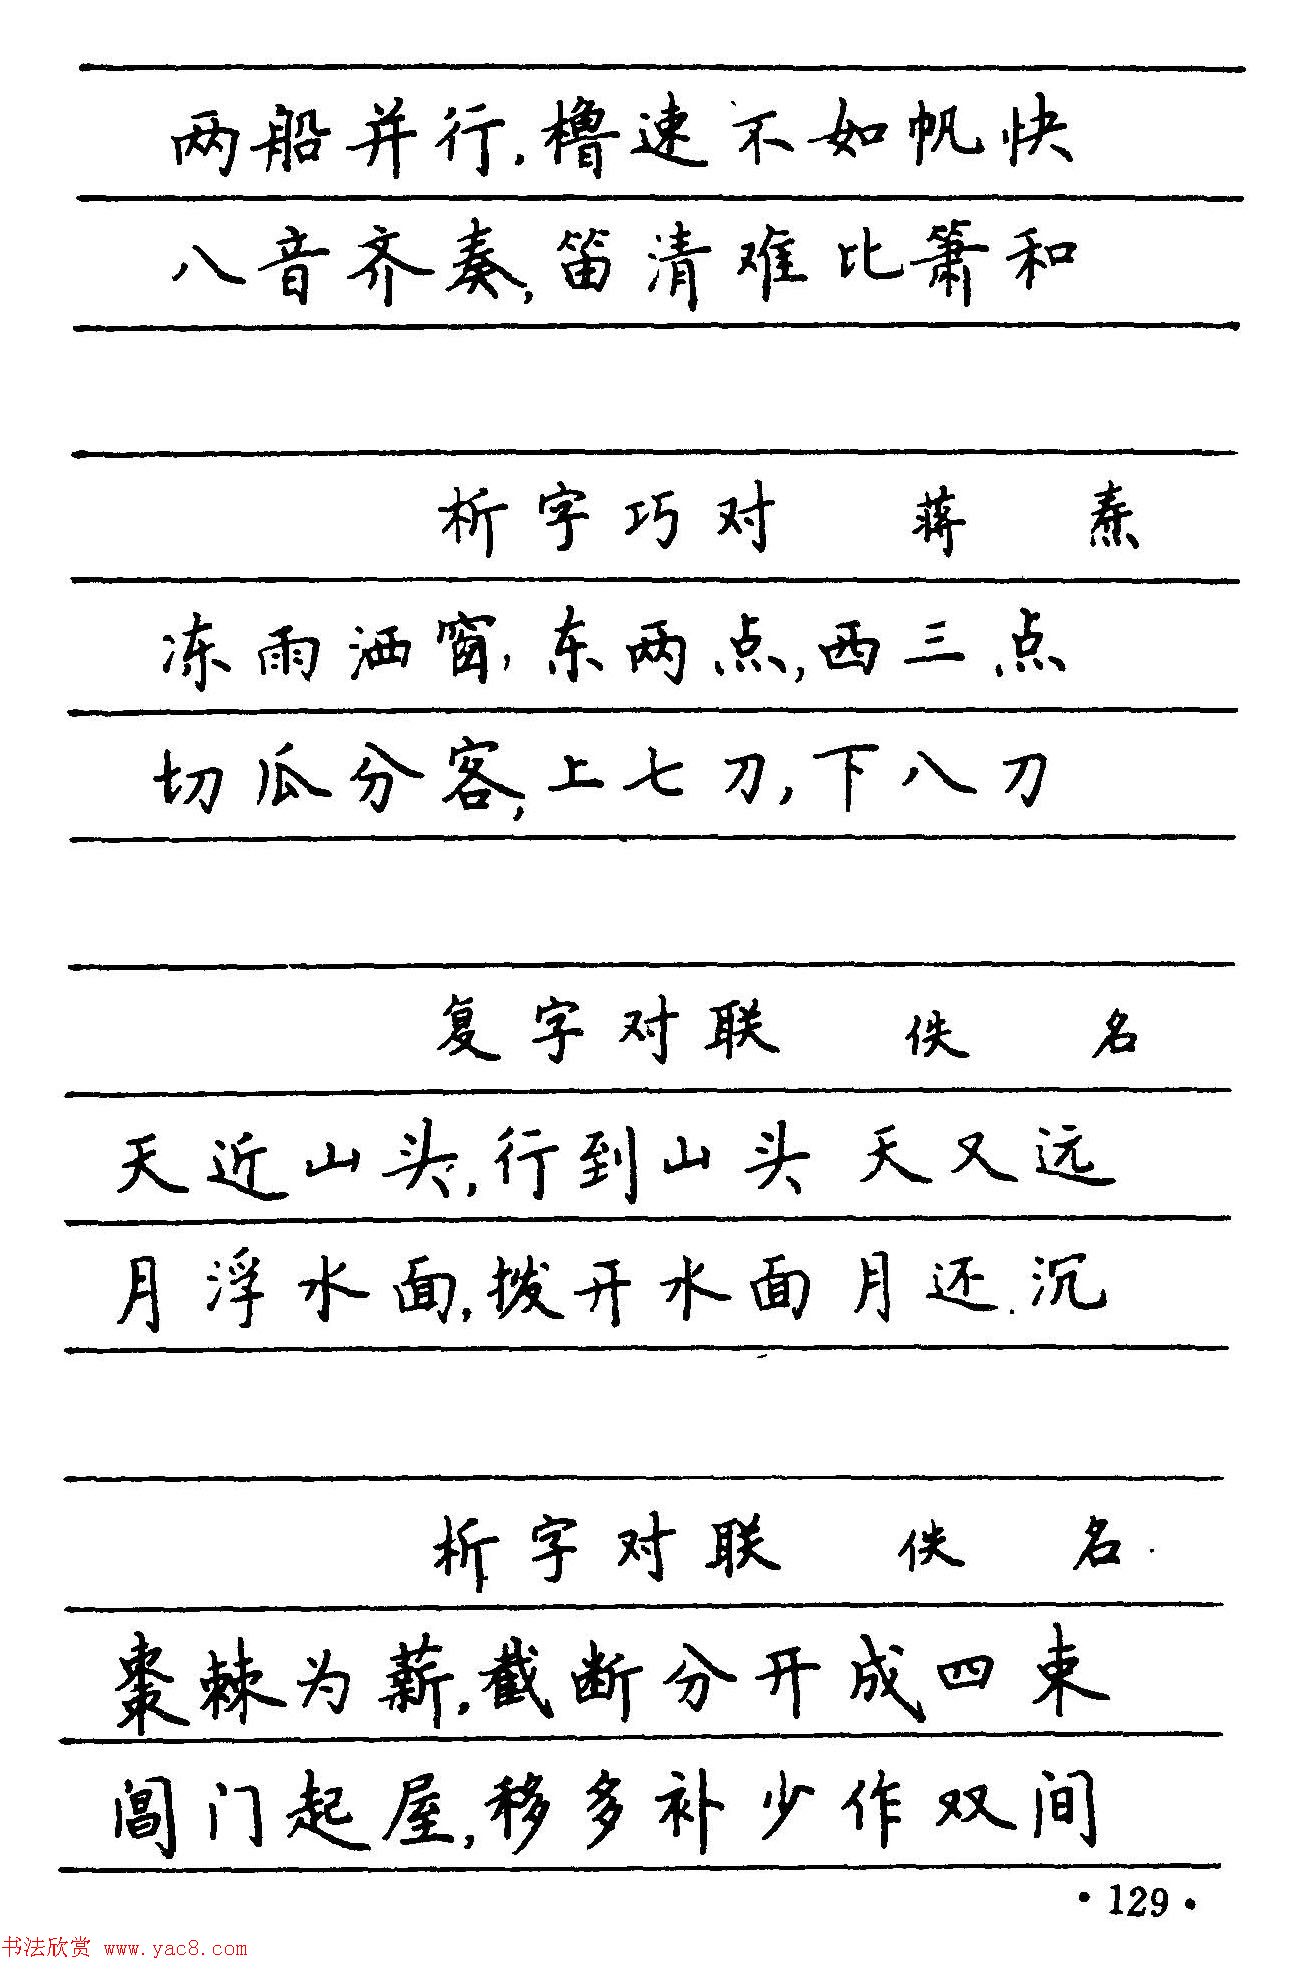 两船并行,橹速不如帆快
八音齐奏,笛清难比箫和
析字巧对 蒋焘
冻雨洒窗,东两点,西三点
切瓜分客,上七刀,下八刀
复字对联 佚名
天近山头,行到山头天又远
月浮水面,拨开水面月还沉
析字对联 佚名
枣棘为薪,截断分开成四束
阊门起屋,移多补少作双间
·129·
书法欣赏 www.yac8.com